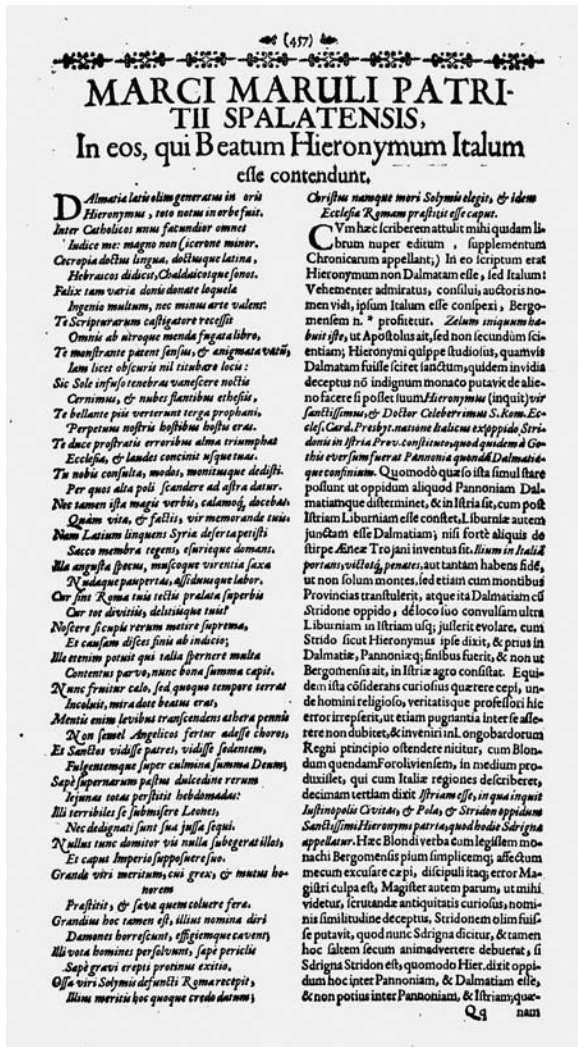 (457)
MARCI MARULI PATRI-
TII SPALATENSIS,
In eos, qui Beatum Hieronymum Italum
esse contendunt.
DAlmatia latis olim generatus in oris
Hieronymus, toto notus in orbe fuit.
Inter Catholicos unus facundior omnes
Iudice me: magno non Cicerone minor.
Cecropia doctus lingua, doctusque latina,
Hebraicos didicit, Chaldaicosque sonos.
Felix tam varia donis donate loquela
Ingenio multum, nec minus arte valens:
Te Scripturarum castigatore recessit
Omnis ab utroque menda fugata libro,
Te monstrante patent sensus, & ænigmata vatũ,
Iam licet obscuris nil titubare locis:
Sic Sole infuso tenebras vanescere noctis
Cernimus, & nubes flantibus ethesiis,
Te bellante piis verterunt terga prophani,
Perpetuus nostris hostibus hostis eras.
Te duce prostratis erroribus alma triumphat
Ecclesia, & laudes concinit usque tuas.
Tu nobis consulta, modos, monitusque dedisti.
Per quos alta poli scandere ad astra datur.
Nec tamen ista magis verbis, calamoq; docebas,
Quàm vita, & factis, vir memorande tuis.
Nam Latium linquens Syria deserta petisti
Sacco membra tegens, esurieque domans.
Illa angusta specus, muscoque virentia saxa
Nudaque paupertas, assiduusque labor.
Cur sint Roma tuis tectis prælata superbis
Cur tot divitiis, delitiisque tuis?
Noscere si cupis rerum metire suprema,
Et causam disces finis ab indicio;
Ille etenim potuit qui talia spernere multa
Contentus parvo, nunc bona summa capit.
Nunc fruitur cælo, sed quoque tempore terras
Incoluit, mira dote beatus erat,
Mentis enim levibus transcendens æthera pennis
Non semel Angelicos fertur adesse choros,
Et Sanctos vidisse patres, vidisse sedentem,
Fulgentemque super culmina summa Deum,
Sæpè supernarum pastus dulcedine rerum
Iejunas totas perstitit hebdomadas:
Illi terribiles se submisere Leones,
Nec dedignati sunt sua jussa sequi.
Nullus tunc domitor vis nulla subegerat illos,
Et caput Imperio supposuere suo.
Grande viri meritum, cui grex, & mutus ho-
norem
Præstitit, & sæva quem coluere fera.
Grandius hoc tamen est, illius nomina diri
Dæmones horrescunt, effigiemque cavent,
Illi vota homines persolvunt, sæpè periclis
Sæpè gravi erepti protinus exitio.
Ossa viri Solymis defuncti Roma recepit,
Illius meritis hoc quoque credo datum;
Christus namque mori Solymis elegit, & idem
Ecclesia Romam præstitit esse caput.
CVm hæc scriberem attulit mihi quidam li-
brum nuper editum, supplementum
Chronicarum appellant;) In eo scriptum erat
Hieronymum non Dalmatam esse, sed Italum:
Vehementer admiratus, consului, auctoris no-
men vidi, ipsum Italum esse conspexi, Bergo-
mensem n. * profitetur. Zelum iniquum ha-
buit iste, ut Apostolus ait, sed non secundùm sci-
entiam; Hieronymi quippe studiosus, quamvis
Dalmatam fuisse scitet sanctum, quidem invidia
deceptus nō indignum monaco putavit de alie-
no facere si posset suum Hieronymus (inquit) vir
sanctissimus, & Doctor Celeberrimus S. Rom. Ec-
cles. Card. Presbyt. natione Italicus ex oppido Stri-
donis in Istria Prov. constituto, quod quidem à Go-
this eversum fuerat Pannonia quondã Dalmatiæ-
que confinium. Quomodò quæso ista simul stare
possunt ut oppidum aliquod Pannoniam Dal-
matiamque disterminet, & in Istria sit, cum post
Istriam Liburniam esse constet, Liburniæ autem
junctam esse Dalmatiam; nisi fortè aliquis de
stirpe Æneæ Trojani inventus sit. Ilium in Italiã
portans, victosq; penates, aut tantam habens fidē,
ut non solum montes, sed etiam cum montibus
Provincias transtulerit, atque ita Dalmatiam cũ
Stridone oppido, dè loco suo convulsam ultra
Liburniam in Istriam usq; jusserit evolare, cum
Strido sicut Hieronymus ipse dixit, & prius in
Dalmatiæ, Pannoniæq; finibus fuerit, & non ut
Bergomensis ait, in Istriæ agro consistat. Equi-
dem ista cōsiderans curiosius quærere cepi, un-
de homini religioso, veritatisque professori hic
error irrepserit, ut etiam pugnantia inter se asse-
rere non dubitet, & inveni in Longobardorum
Regni principio ostendere nititur, cum Blon-
dum quendam Foroliviensem, in medium pro-
duxisset, qui cum Italiæ regiones describeret,
decimam tertiam dixit Istriam esse, in qua inquit
Iustinopolis Civitas, & Pola, & Stridon oppidum
Sanctissimi Hieronymi patria, quod hodie Sdrigna
appellatur. Hæc Blondi verba cum legissem mo-
nachi Bergomensis pium simplicemq; affectum
mecum excusare cæpi, discipuli itaq; error Ma-
gistri culpa est, Magister autem parum, ut mihi
videtur, scrutandæ antiquitatis curiosus, nomi-
nis similitudine deceptus, Stridonem olim fuis-
se putavit, quod nunc Sdrigna dicitur, & tamen
hoc saltem secum animadvertere debuerat, si
Sdrigna Stridon est, quomodo Hier. dixit oppi-
dum hoc inter Pannoniam, & Dalmatiam esse,
& non potius inter Pannoniam, & Istriam; quæ-
Qq nam